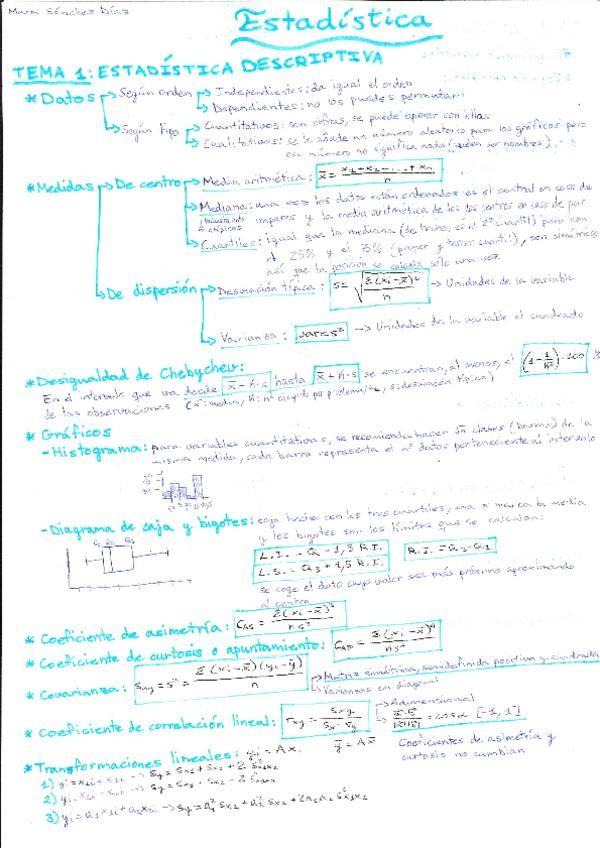 Mara Sánchez Díaz
Estadística
TEMA 1: ESTADÍSTICA DESCRIPTIVA
* Datos → Según orden → Independientes: da igual el orden
→ Dependientes: no los puedes permutar
→ Según tipo → Cuantitativos: son cifras, se puede operar con ellas
→ Cualitativos: se le añade un número aleatorio para los gráficos pero
ese número no significa nada (suelen ser nombres).
* Medidas → De centro → Media aritmética: x̄ = x₁+x₂+...+xₙ / n
→ Mediana: una vez los datos están ordenados es el central en caso de
impares y la media aritmética de los dos centros en caso de par
→ Cuantiles: igual que la mediana (de hecho, es el 2º cuartil) pero con
el 25% y el 75% (primer y tercer cuartil), son simétricos
así que la posición se calcula sólo una vez
→ De dispersión → Desviación típica: s = √(Σ(xi-x̄)² / n) → Unidades de la variable
→ Varianza: var = s² → Unidades de la variable al cuadrado
* Desigualdad de Chebychev:
En el intervalo que va desde x̄ - k·s hasta x̄ + k·s se encuentran, al menos, el (1 - 1/k²)·100 %
de las observaciones (x̄: media, k: nº del problema, s: desviación típica)
* Gráficos
- Histograma: para variables cuantitativas, se recomienda hacer √n clases (barras) de la
misma medida, cada barra representa el nº datos perteneciente al intervalo
- Diagrama de caja y bigotes: caja hecha con los tres cuartiles, una x marca la media
y los bigotes son los límites que se calculan:
Q₁ Q₂ Q₃
L.I. = Q₁ - 1,5 R.I. R.I. = Q₃ - Q₁
L.S. = Q₃ + 1,5 R.I.
se coge el dato cuyo valor sea más próximo aproximando
al centro
* Coeficiente de asimetría: C_AS = Σ(xi-x̄)³ / ns³
* Coeficiente de curtosis o apuntamiento: C_AP = Σ(xi-x̄)⁴ / ns⁴
* Covarianza: Sxy = = Σ(xi-x̄)(yi-ȳ) / n → Matriz simétrica, semidefinida positiva y cuadrada
→ Varianzas en diagonal
* Coeficiente de correlación lineal: rxy = Sxy / Sx·Sy → Adimensional
→ = cos α [-1, 1]
* Transformaciones lineales: yi = Ax. ȳ = Ax̄
Coeficientes de asimetría y
curtosis no cambian
1) yi = x₁i + x₂i → S²y = S²x₁ + S²x₂ + 2·Sx₁x₂
2) yi = x₁i - x₂i → S²y = S²x₁ + S²x₂ - 2·Sx₁x₂
3) yi = a₁x₁i + a₂x₂i → S²y = a₁²S²x₁ + a₂²S²x₂ + 2a₁a₂Sx₁x₂